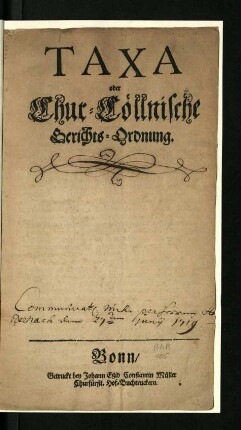 TAXA
oder
Chur-Cöllnische
Gerichts-Ordnung.
Communicat
den 27 Junÿ 1719
Bonn/
Getruckt bey Johann Constantin Müller
Churfürstl. Hof-Buchtruckern.